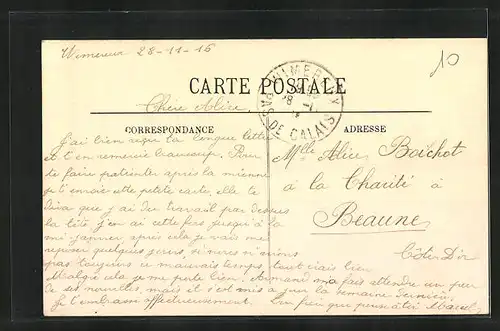 Wimereux 28-11-16
10
CARTE POSTALE
WIMEREUX
PAS DE CALAIS
Chère Alice
CORRESPONDANCE
ADRESSE
J'ai bien reçu la longue lettre
et t'en remercie beaucoup. Pour
te faire patienter après la mienne
je t'envoie cette petite carte, elle te
dira que j'ai du travail par dessus
la tête j'en ai cette fois jusqu'à la
mi janvier après cela je vais me
reposer quelques jours, si nous n'avions
pas toujours ce mauvais temps tout irait bien
Malgré cela je me porte bien. Armand m'a fait attendre un peu
de ses nouvelles, mais il s'est mis à jour la semaine dernière
Je t'embrasse affectueusement.
Mlle Alice Boichot
à la Charité à
Beaune
Côte d'Or